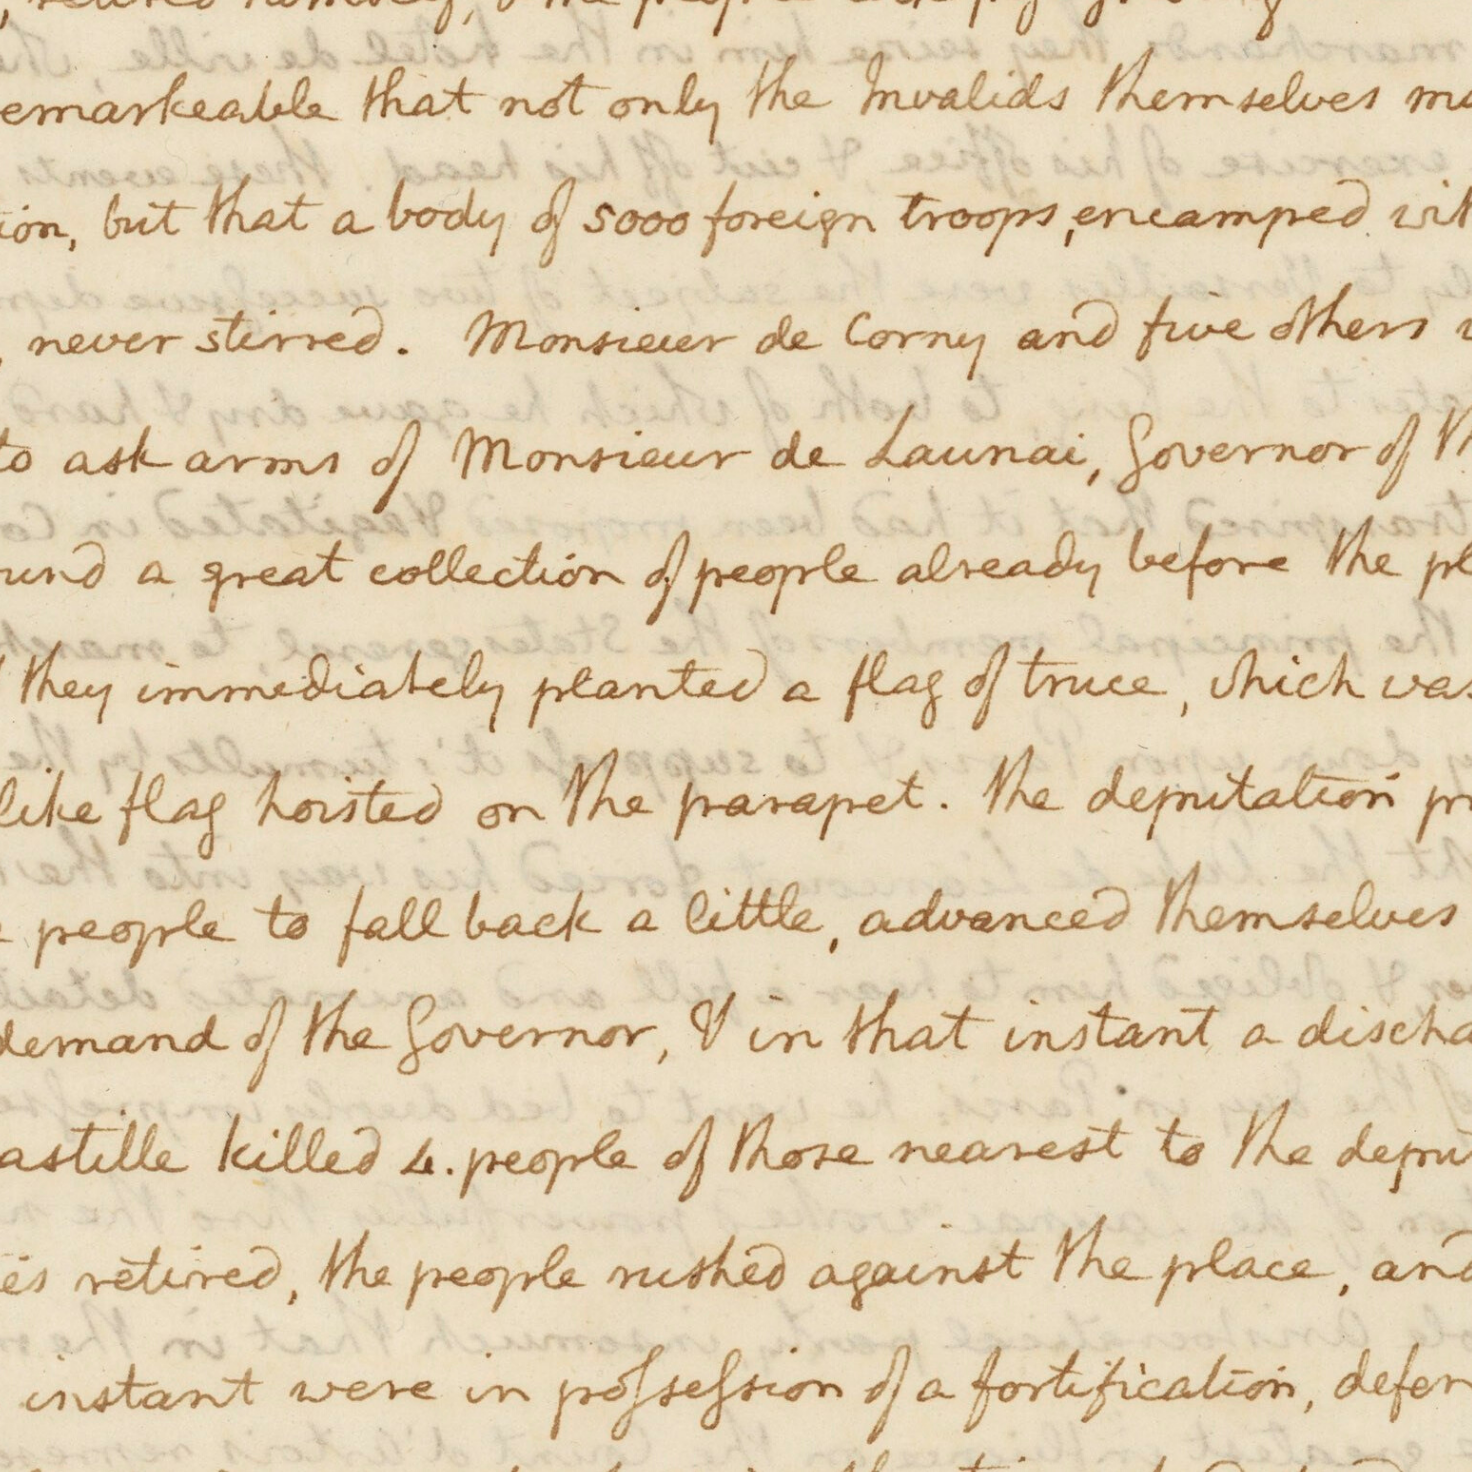 emarkeable that not only the Invalids themselves ma
ion, but that a body of 5000 foreign troops, encamped wit
, never stirred. Monsieur de Corny and five others w
to ask arms of Monsieur de Launai, Governor of th
und a great collection of people already before the pl
they immediately planted a flag of truce, which was
like flag hoisted on the parapet. the deputation pr
people to fall back a little, advanced themselves
demand of the Governor, & in that instant a discha
astille killed 4. people of those nearest to the deput
es retired, the people rushed against the place, and
instant were in possession of a fortification, defen